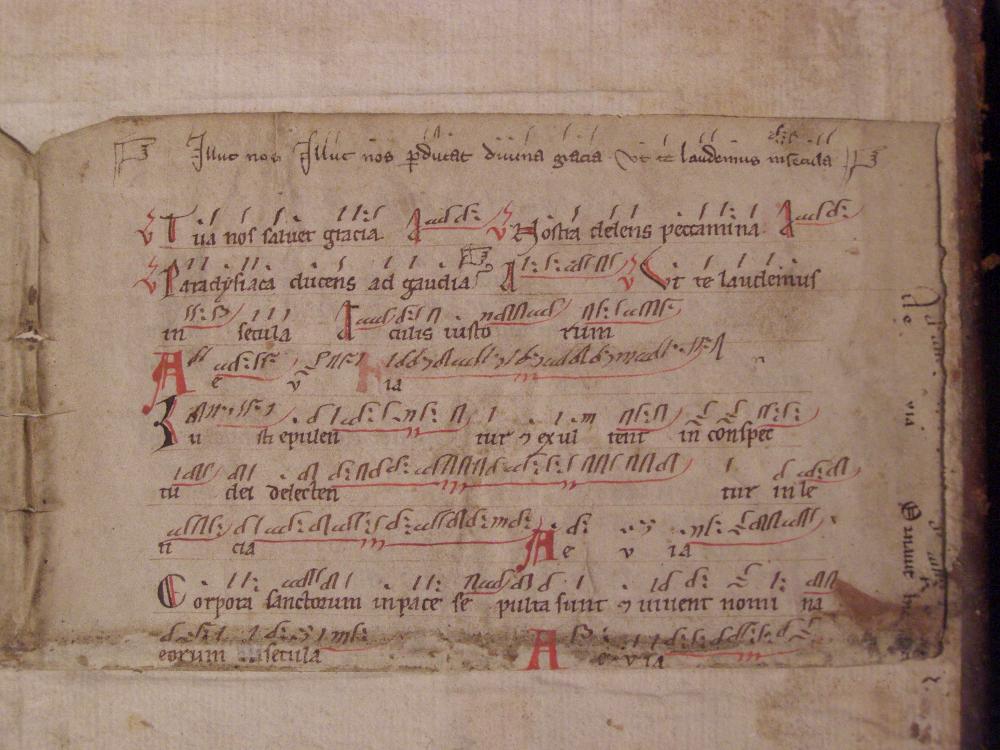 Illuc nos Illuc nos pducat diuina gracia vt te laudemus in secula
Tua nos saluet gracia A Nostra delens peccamina A
Paradysiaca ducens ad gaudia A Vt te laudemus
in secula A culis iusto rum
A e v ia
Iu sti epulen tur ⁊ exul tent in conspec
tu dei delecten tur in le
ti cia A e v ia
Corpora sanctorum in pace se pulta sunt ⁊ uiuent nomi na
eorum secula A e v ia
via